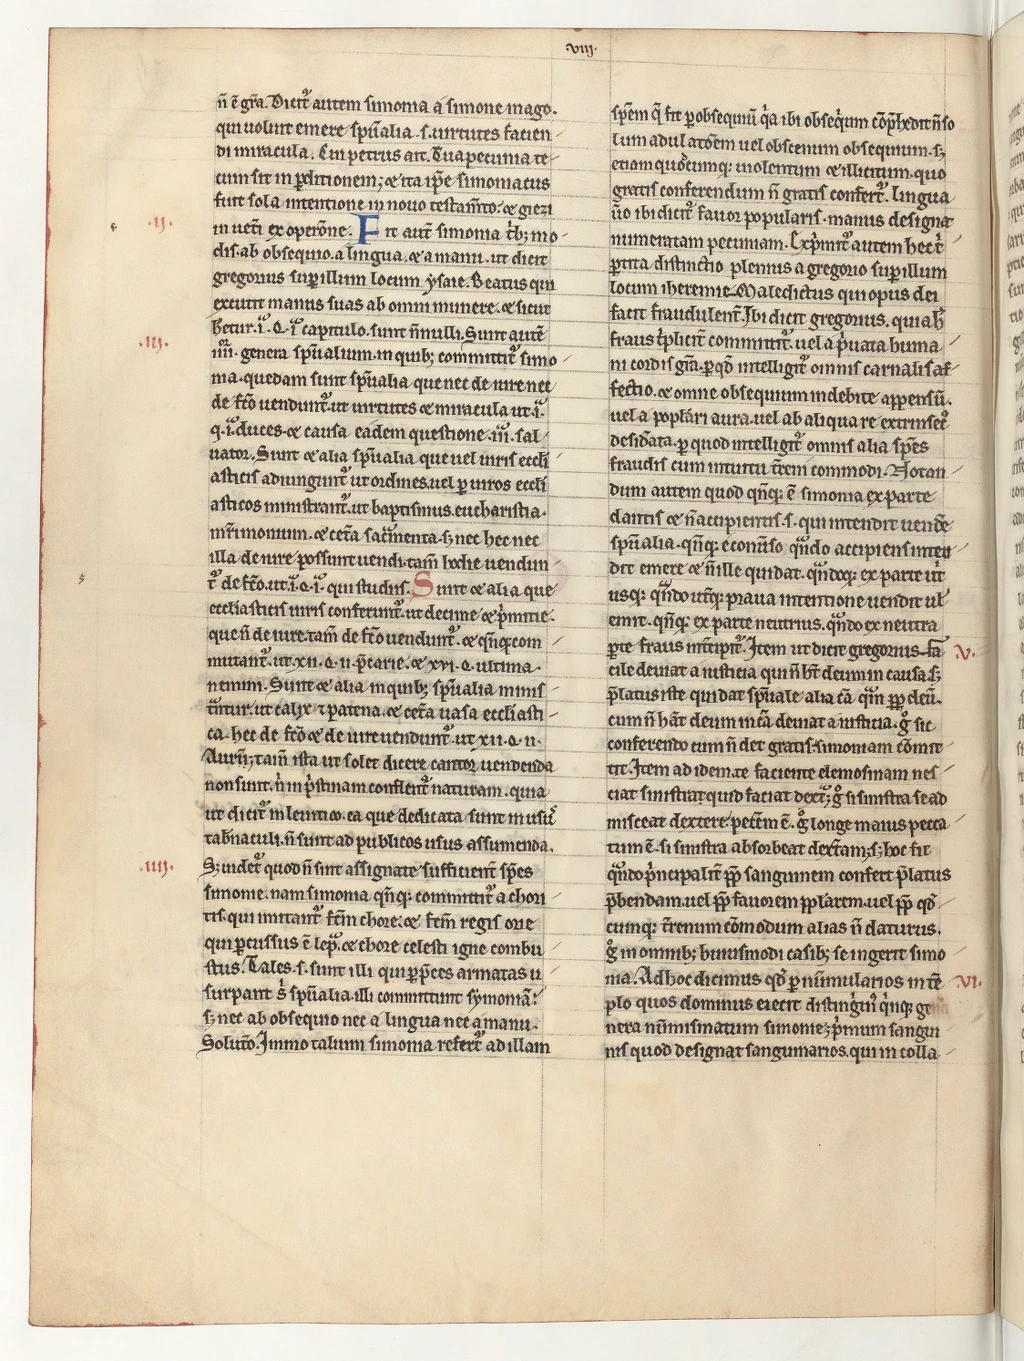 .viij.
n̄ ē gr̄a. Dicit᷑ autem simonia a simone mago.
qui uoluit emere sp̄ualia .s. uirtutes facien
di miracula. Cui petrus ait. Tua pecunia te
cum sit in ꝑditionem; ⁊ ita ip̄e simoniacus
fuit sola intentione in nouo testam̄to. ⁊ giezi
in uet̄i ex oper̄one. Fit aut̄ simonia t̄b; mo
dis. ab obsequio. a lingua. ⁊ a manu. ut dicit
gregorius sup̱ illum locum ysaie. Beatus qui
excutit manus suas ab omni munere. ⁊ sicut
het̄ur .i. q. i. capitulo. sunt n̄nulli. Sunt aut̄e
.iij.
.iiij. genera sp̄ualium. in quib; committit᷑ simo
.iij.
nia. quedam sunt sp̄ualia que nec de iure nec
de fc̄o uendunt᷑. ut uirtutes ⁊ miracula ut .i.
q. i. duces. ⁊ causa eadem questione .iii. sal
uator. Sunt ⁊ alia sp̄ualia que uel iuris eccl̄i
asticis adiungunt᷑ ut ordines. uel ꝑ uiros eccl̄i
asticos ministrant᷑. ut baptismus. eucharistia.
mr̄imonium. ⁊ cet̄a sac̄menta. s; nec hec nec
illa de iure possunt uendi. tam̄ hodie uendun
t᷑ de fc̄o. ut .i. q. i. qui studijs. Sunt ⁊ alia que
ecclesiasticis uiris conferunt᷑. ut decime ⁊ p̄mitie.
que n̄ de iure. tam̄ de fc̄o uendunt᷑. ⁊ qn̄q; com
mutant᷑. ut .xii. q. ii. p̄carie. ⁊ .xvi. q. ultima
nemini. Sunt ⁊ alia in quib; sp̄ualia minis
tr̄ntur. ut calix ⁊ patena. ⁊ cet̄a uasa eccl̄iasti
ca. hec de fc̄o ⁊ de iure uendunt᷑. ut .xii. q. ii.
Aurū; tam̄ ista ut solet dicere cantor uendenda
non sunt. n̄ in p̄stinam conflent᷑ naturam. quia
ut dicit᷑ in leuitico. ea que dedicata sunt in usū
tab̄naculi. n̄ sunt ad publicos usus assumenda.
.iiij.
S; uidet᷑ quod n̄ sint assignate sufficient̄ sp̄es
simonie. nam simonia qn̄q; committit᷑ a chori
tis. qui imitant᷑ fc̄m chore. ⁊ fc̄m regis ozie
qui ꝑcussus ē lep̄. ⁊ chore celesti igne combu
stus. Tales .s. sunt illi qui ꝑ p̄ces armatas u
surpant s̄ sp̄ualia. illi committunt symoniā.
s; nec ab obsequio nec a lingua nec a manu.
Soluto. Immo talium simonia refert᷑ ad illam
sp̄em q̄ fit ꝑ obsequiū q̄a ibi obseq̄um cōp̄hedit᷑ n̄ so
lum adulatōem uel obscenum obsequium. s;
etiam quōcumq; uiolentum ⁊ illicitum. quo
gratis conferendum n̄ gratis confert᷑. Lingua
ūo ibi dicit᷑ fauor popularis. manus designat
numeratam pecuniam. Exp̄mit᷑ autem hec t̄
ꝑtita distinctio plenius a gregorio sup̱ illum
locum iheremie. Maledictus qui opus dei
facit fraudulent̄. Ibi dicit gregorius. quia h̄
fraus t̄plicit᷑ committit᷑. uel a p̄uata huma
ni cordis gr̄a. ꝑ qd̄ intelligit᷑ omnis carnalis af
fectio. ⁊ omne obsequium indebite appensū.
uel a popl̄ari aura. uel ab aliqua re extrinsec᷑
desid̄ata. ꝑ quod intelligit᷑ omnis alia sp̄es
fraudis cum intuitu t̄reni commodi. Notan
dum autem quod qn̄q; ē simonia ex parte
dantis ⁊ n̄ accipientis .s. qui intendit uende
sp̄ualia. qn̄q; econūso qn̄do accipiens inten
dit emere ⁊ n̄ ille qui dat. qn̄doq; ex parte ut̄
usq; qn̄do ut̄q; praua intentione uendit ul̄
emit. qn̄q; ex parte neutrius. qn̄do ex neutra
ꝑte fraus inc̄ipit᷑. Item ut dicit gregorius. fa
V.
cile deuiat a iusticia qui n̄ h̄t deum in causa. s;
p̄latus iste qui dat sp̄uale alia cā qm̄ ꝓp̱ deū.
cum n̄ hāt deum in cā deuiat a iusticia. g̊ sic
conferendo cum n̄ det gratis. simoniam cōmit
tit. Item ad idem. te faciente elemosinam nes
ciat sinistra t̄ quid faciat dext̄; g̊ si sinistra se ad
misceat dextere pecc̄m ē. g̊ longe maius pecca
tum ē. si sinistra absorbeat dext̄am; s; hoc fit
qn̄do p̄ncipalit̄ ꝓp̱ sanguinem confert p̄latus
p̄bendam. uel ꝓp̱ fauorem ppl̄arem. uel ꝓp̱ qd̄
cumq; t̄renum cōmodum alias n̄ daturus.
g̊ in omnib; huiusmodi casib; se ingerit simo
nia. Ad hoc dicimus qd̄ ꝑ nūmularios in tē
.VI.
plo quos dominus eiecit disting̊nt᷑ q̄nq; ge
nera nūmismatum simonie; p̄mum sangui
nis quod designat sanguinarios. qui in colla